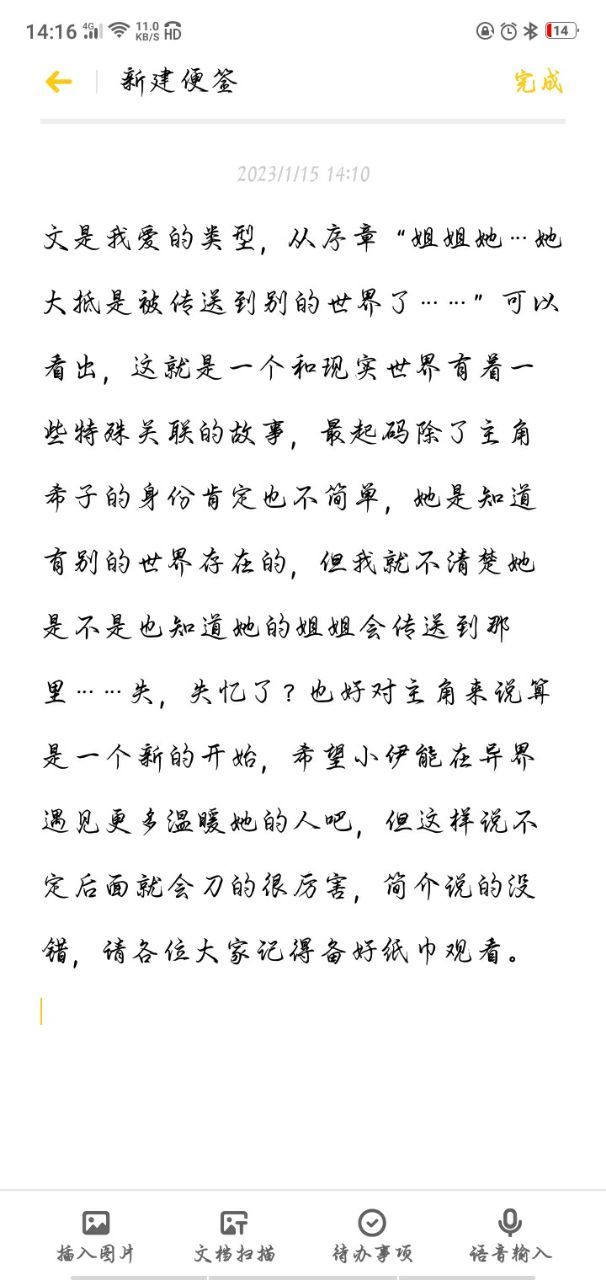 14:16 4G 11.0 KB/S HD 14
新建便签 完成
2023/1/15 14:10
文是我爱的类型，从序章“姐姐她…她
大抵是被传送到别的世界了……”可以
看出，这就是一个和现实世界有着一
些特殊关联的故事，最起码除了主角
希子的身份肯定也不简单，她是知道
有别的世界存在的，但我就不清楚她
是不是也知道她的姐姐会传送到那
里……失，失忆了？也好对主角来说算
是一个新的开始，希望小伊能在异界
遇见更多温暖她的人吧，但这样说不
定后面就会刀的很厉害，简介说的没
错，请各位大家记得备好纸巾观看。
插入图片 文档扫描 待办事项 语音输入